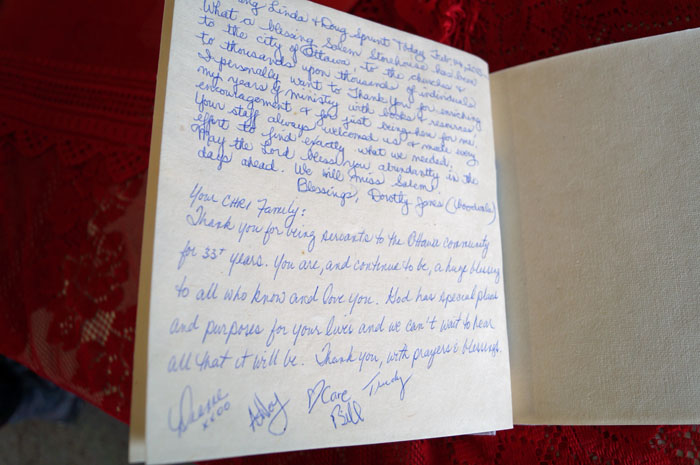 Linda & Doug Sprunt Friday Feb.
What a blessing Salem Storehouse has been
to the city of Ottawa, to the churches &
to thousands upon thousands of individuals
I personally want to thank you for enriching
my years of ministry with books & resources
encouragement, & for just being here for me.
Your staff always welcomed us & made every
effort to find exactly what we needed.
May the Lord bless you abundantly in the
days ahead. We will miss Salem!
Blessings, Dorothy
Your CHRI Family:
Thank you for being servants to the Ottawa community
for 33+ years. You are, and continue to be, a huge blessing
to all who know and love you. God has special plans
and purposes for your lives and we can't wait to hear
all that it will be. Thank you, with prayers & blessings.
xxoo Trudy
Bill